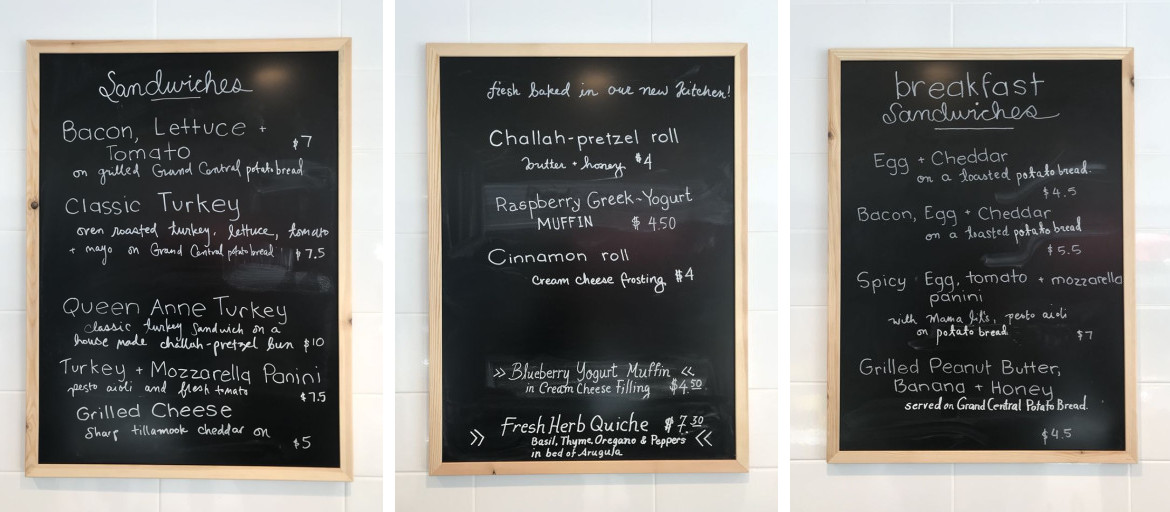 Sandwiches
Bacon, Lettuce +
Tomato
$7
on grilled Grand Central potato bread
Classic Turkey
oven roasted turkey, lettuce, tomato
+ mayo on Grand Central potato bread $7.5
Queen Anne Turkey
classic turkey sandwich on a
house made challah-pretzel bun $10
Turkey + Mozzarella Panini
pesto aioli and fresh tomato $7.5
Grilled Cheese
Sharp tillamook cheddar on
$5
fresh baked in our new kitchen!
Challah-pretzel roll
butter + honey $4
Raspberry Greek-Yogurt
MUFFIN $4.50
Cinnamon roll
cream cheese frosting $4
>> Blueberry Yogurt Muffin <<
in Cream Cheese Filling $4.50
Fresh Herb Quiche $7.30
>> Basil, Thyme, Oregano & Peppers <<
in bed of Arugula
breakfast
Sandwiches
Egg + Cheddar
on a toasted potato bread.
$4.5
Bacon, Egg + Cheddar
on a toasted potato bread
$5.5
Spicy Egg, tomato + mozzarella
panini
with Mama Lil's, pesto aioli
on potato bread $7
Grilled Peanut Butter,
Banana + Honey
served on Grand Central Potato Bread.
$4.5